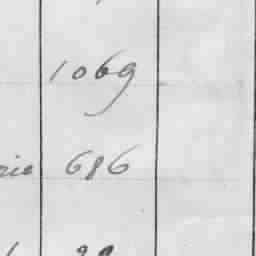 1069
rie 686